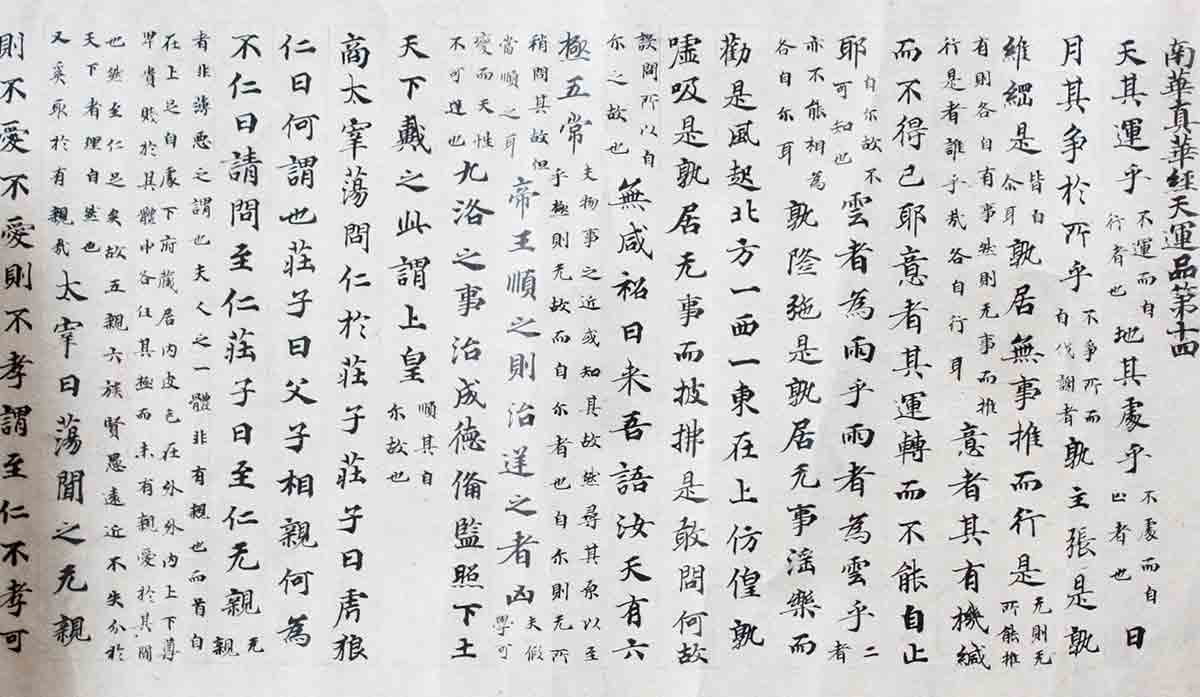 南華真華經天運品第十四
天其運乎不運而自行者也地其處乎不處而自止者也日
月其争於所乎不争所而自代謝者孰主張是孰
維綱是皆自尒耳孰居無事推而行是无則无所能推
有則各自有事然則无事而推行是者誰乎哉各自行耳意者其有機緘
而不得已耶意者其運轉而不能自止
耶自尒故不可知也雲者為雨乎雨者為雲乎二者
亦不能相為各自尒耳孰隆弛是孰居无事滛樂而
勸是風起北方一西一東在上仿偟孰
嘘吸是孰居无事而披拂是敢問何故
設問所以自尒之故也無咸袑曰来吾語汝天有六
極五常夫物事之近或知其故然尋其原以至乎極則无故而自尒者也自尒則无所
稍問其故但當順之耳帝王順之則治逆之者凶夫假學可
變而天性不可逆也九洛之事治成德俻監照下土
天下戴之此謂上皇順其自尒故也
商太宰蕩問仁於莊子莊子曰虎狼
仁曰何謂也莊子曰父子相親何為
不仁曰請問至仁莊子曰至仁无親无親
者非薄悪之謂也夫人之一體非有親也而首自在上足自處下府藏居内皮毛在外外内上下尊
卑貴賤於其體中各任其極而未有親愛於其間也然至仁足矣故五親六族賢愚遠近不失分於
天下者理自然也又奚取於有親哉太宰曰蕩聞之无親
則不愛不愛則不孝謂至仁不孝可